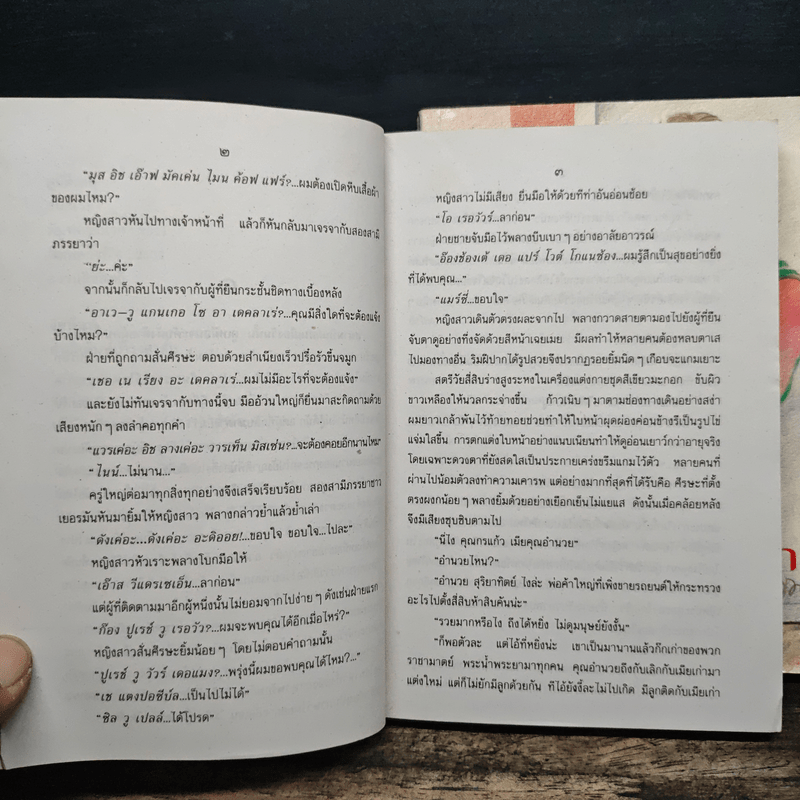 ๒
“มุส อิช เอ๊าฟ มัคเค่น ไมน ค้อฟ แฟร์?...ผมต้องเปิดหีบเสื้อผ้า
ของผมไหม?”
หญิงสาวหันไปทางเจ้าหน้าที่ แล้วก็หันกลับมาเจรจากับสองสามี
ภรรยาว่า
“ย่ะ...ค่ะ”
จากนั้นก็กลับไปเจรจากับผู้ที่ยืนกระชั้นชิดทางเบื้องหลัง
“อาเว–วู แกนเกอ โซ อา เดคลาเร่?...คุณมีสิ่งใดที่จะต้องแจ้ง
บ้างไหม?”
ฝ่ายที่ถูกถามสั่นศีรษะ ตอบด้วยสำเนียงเร็วปรื๋อรัวขึ้นจมูก
“เชอ เน เรียง อะ เดคลาเร่...ผมไม่มีอะไรที่จะต้องแจ้ง”
และยังไม่ทันเจรจากับทางนี้จบ มืออ้วนใหญ่ก็ยื่นมาสะกิดถามด้วย
เสียงหนัก ๆ ลงลำคอทุกคำ
“แวรเค่อะ อิช ลางเค่อะ วารเท็น มิสเซ่น?...จะต้องคอยอีกนานไหม”
“ไนน์...ไม่นาน...”
ครู่ใหญ่ต่อมาทุกสิ่งทุกอย่างจึงเสร็จเรียบร้อย สองสามีภรรยาชาว
เยอรมันหันมายิ้มให้หญิงสาว พลางกล่าวย้ำแล้วย้ำเล่า
“ดังเค่อะ...ดังเค่อะ อะดิออย!...ขอบใจ ขอบใจ...ไปละ”
หญิงสาวหัวเราะพลางโบกมือให้
“เอ๊าส วีแดรเซเอ็น...ลาก่อน”
แต่ผู้ที่ติดตามมาอีกผู้หนึ่งนั้นไม่ยอมจากไปง่าย ๆ ดังเช่นฝ่ายแรก
“ก๊อง ปูเรช์ วู เรอวัว?...ผมจะพบคุณได้อีกเมื่อไหร่?”
หญิงสาวสั่นศีรษะยิ้มน้อย ๆ โดยไม่ตอบคำถามนั้น
“ปูเรช์ วู วัวร์ เดอแมง?...พรุ่งนี้ผมขอพบคุณได้ไหม?...”
“เช แตงปอซีบ์ล...เป็นไปไม่ได้”
“ซิล วู เปลล์...ได้โปรด”
๓
หญิงสาวไม่มีเสียง ยื่นมือให้ด้วยทีท่าอันอ่อนช้อย
“โอ เรอวัวร์...ลาก่อน”
ฝ่ายชายจับมือไว้พลางบีบเบา ๆ อย่างอาลัยอาวรณ์
“อ๊องช้องเต้ เดอ แปร์ โวต์ โกแนซ้อง...ผมรู้สึกเป็นสุขอย่างยิ่ง
ที่ได้พบคุณ...”
“แมร์ซี่...ขอบใจ”
หญิงสาวเดินตัวตรงผละจากไป พลางกวาดสายตามองไปยังผู้ที่ยืน
จับตาดูอย่างทึ่งจัดด้วยสีหน้าเฉยเมย มีผลทำให้หลายคนต้องหลบตาเส
ไปมองทางอื่น ริมฝีปากได้รูปสวยจึงปรากฏรอยยิ้มนิด ๆ เกือบจะแกมเยาะ
สตรีวัยสี่สิบร่างสูงระหงในเครื่องแต่งกายชุดสีเขียวมะกอก ขับผิว
ขาวเหลืองให้นวลกระจ่างขึ้น ก้าวเนิบ ๆ มาตามช่องทางเดินอย่างสง่า
ผมยาวเกล้าพันไว้ท้ายทอยช่วยทำให้ใบหน้าผุดผ่องค่อนข้างรีเป็นรูปไข่
แจ่มใสขึ้น การตกแต่งใบหน้าอย่างแนบเนียนทำให้ดูอ่อนเยาว์กว่าอายุจริง
โดยเฉพาะดวงตาที่ยังสดใสเป็นประกายเคร่งขรึมแกมไว้ตัว หลายคนที่
ผ่านไปน้อมตัวลงทำความเคารพ แต่อย่างมากที่สุดที่ได้รับคือ ศีรษะที่ตั้ง
ตรงผงกน้อย ๆ พลางยิ้มด้วยอย่างเยือกเย็นไม่แยแส ดังนั้นเมื่อคล้อยหลัง
จึงมีเสียงซุบซิบตามไป
“นี่ไง คุณกรแก้ว เมียคุณอำนวย”
“อำนวยไหน?”
“อำนวย สุริยาทิตย์ ไงล่ะ พ่อค้าใหญ่ที่เพิ่งขายรถยนต์ให้กระทรวง
อะไรไปตั้งสี่สิบห้าสิบคันน่ะ”
“รวยมากหรือไง ถึงได้หยิ่ง ไม่ดูมนุษย์ยังงั้น”
“ก็พอตัวละ แต่ไอ้ที่หยิ่งน่ะ เขาเป็นมานานแล้วก๊กเก่าของพวก
ราชามาตย์ พระน้ำพระยามาทุกคน คุณอำนวยถึงกับเลิกกับเมียเก่ามา
แต่งใหม่ แต่ก็ไม่ยักมีลูกด้วยกัน ทีไอ้ยังงี้ละไม่ไปเกิด มีลูกติดกับเมียเก่า